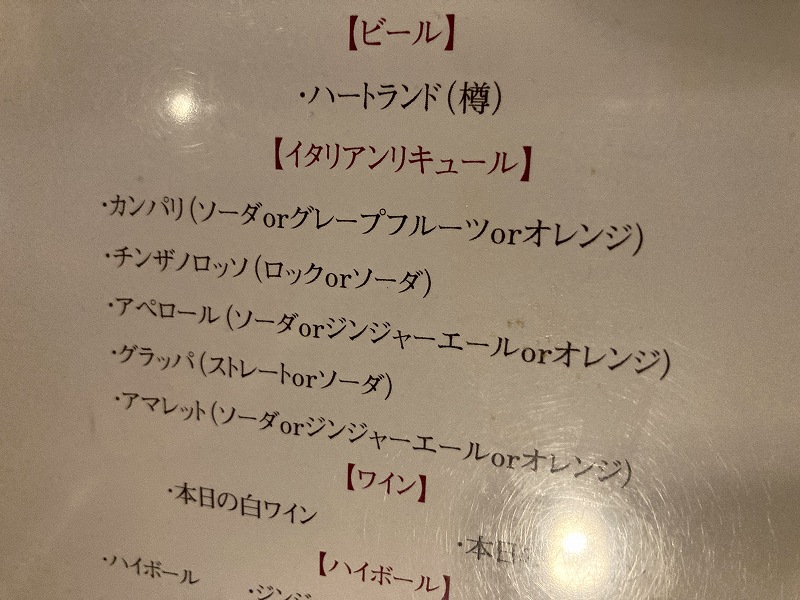 【ビール】
・ハートランド(樽)
【イタリアンリキュール】
・カンパリ(ソーダorグレープフルーツorオレンジ)
・チンザノロッソ(ロックorソーダ)
・アペロール(ソーダorジンジャーエールorオレンジ)
・グラッパ(ストレートorソーダ)
・アマレット(ソーダorジンジャーエールorオレンジ)
【ワイン】
・本日の白ワイン
・本日
【ハイボール】
・ハイボール